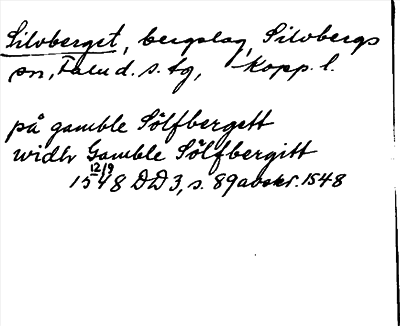 Silvberget, bergslag, Silvbergs
sn, Falu d. s. tg, Kopp. l.
på gamble Sölfbergett
widh Gamble Sölfbergitt
12/9
1548 DD3, s. 89 avskr. 1548